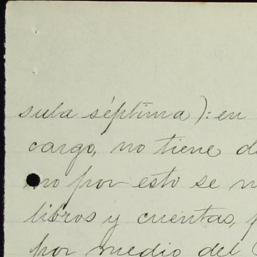 sula séptima): en
cargo, no tiene d
no por esto se n
libros y cuentas, p
por medio del